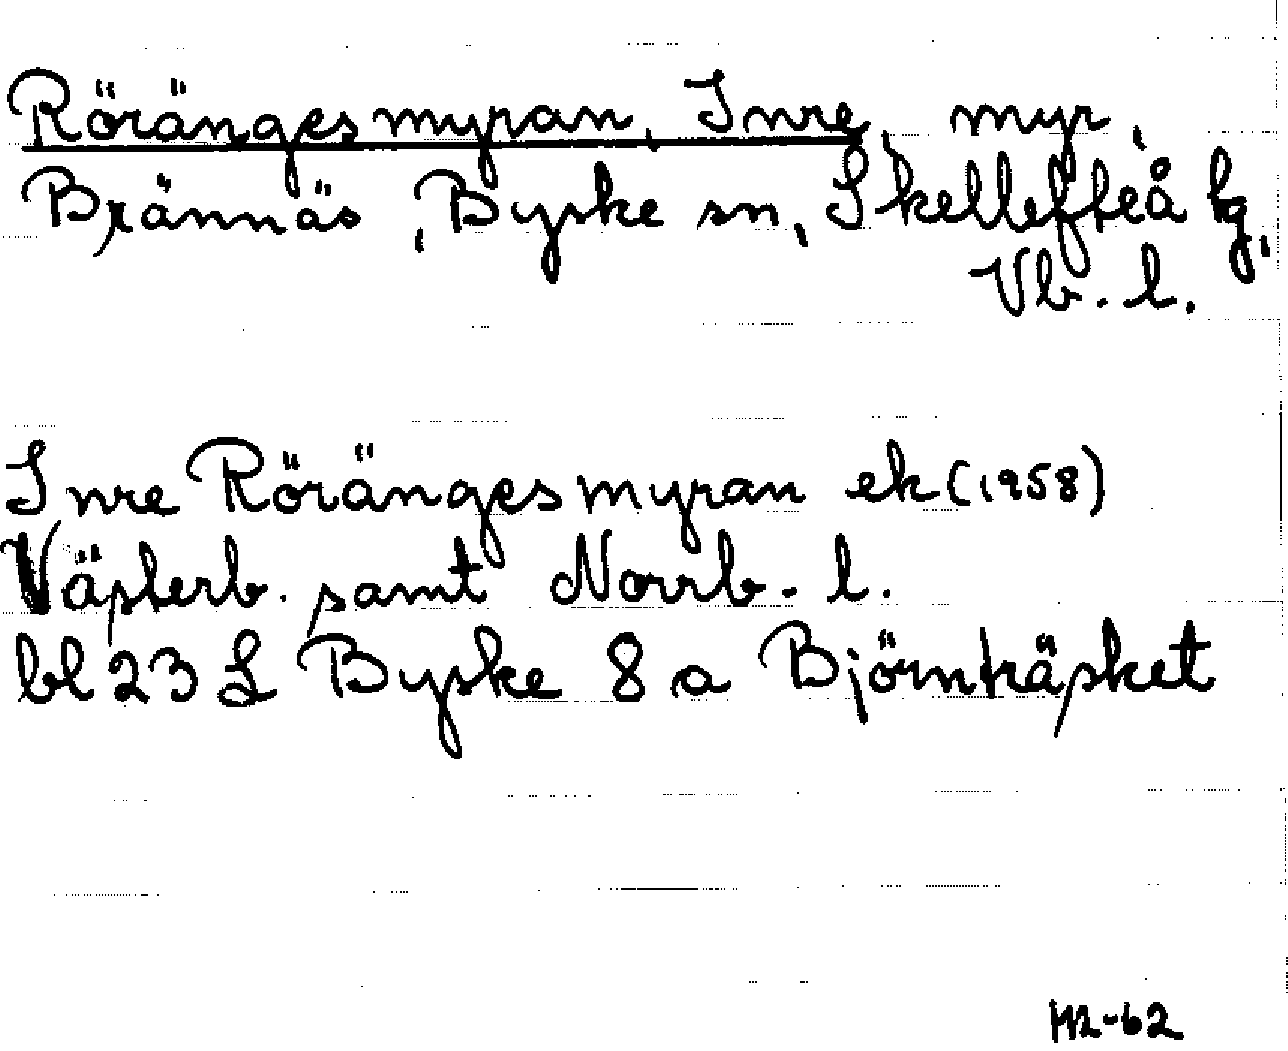 Rörängesmyran, Inre, myr,
Brännäs, Byske sn, Skellefteå kg,
Vb. l.
Inre Rörängesmyran ek (1958)
Västerb. samt Norrb. l.
bl 23 L Byske 8 a Björnträsket